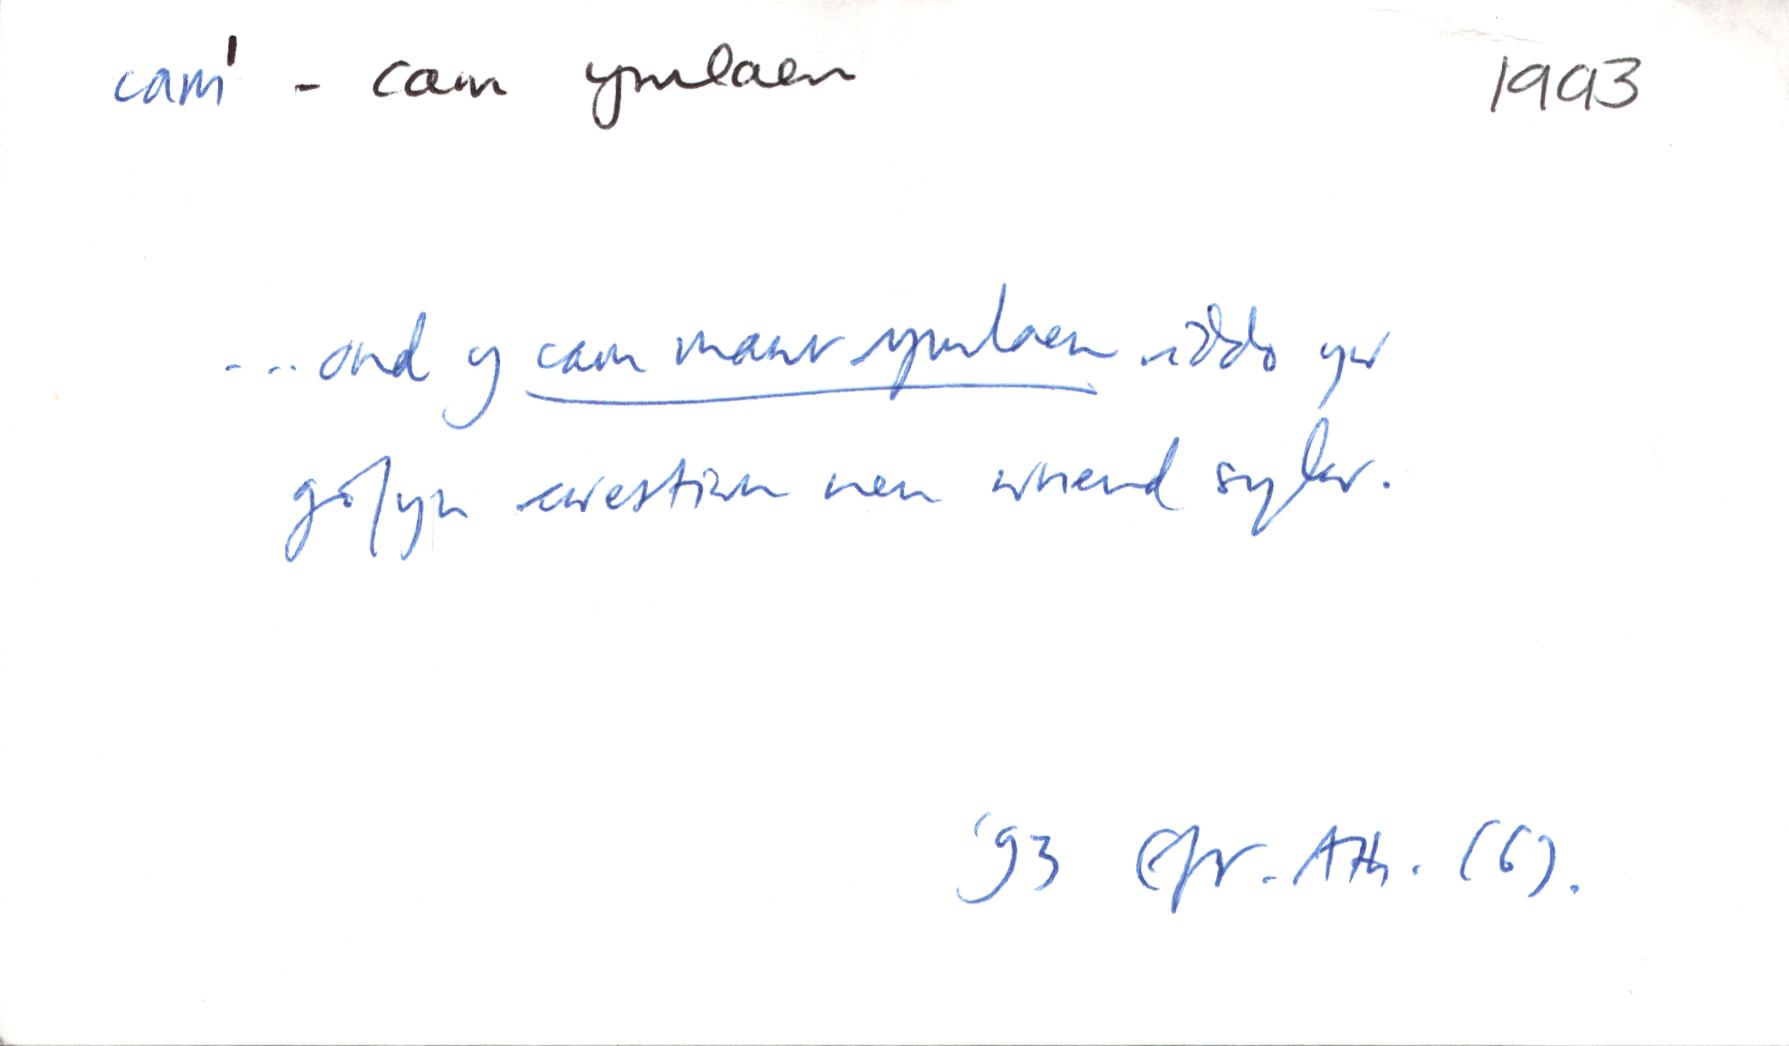 cam¹ - cam ymlaen 1993
...ond y cam mawr ymlaen iddo yw
gofyn cwestiwn neu wneud sylw.
'93 Cfr. Ath. (6).